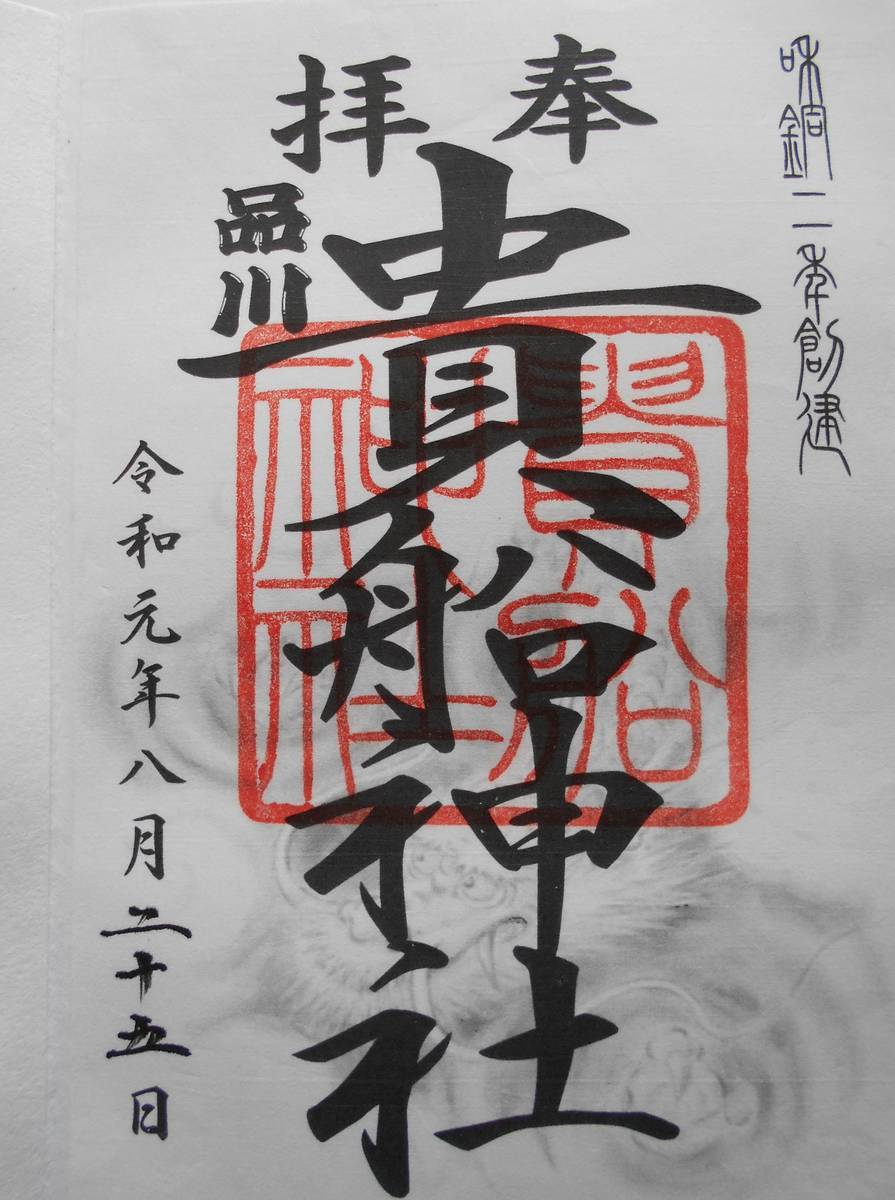 和銅二年創建
奉拝
品川
貴船神社
貴船神社
令和元年八月二十五日